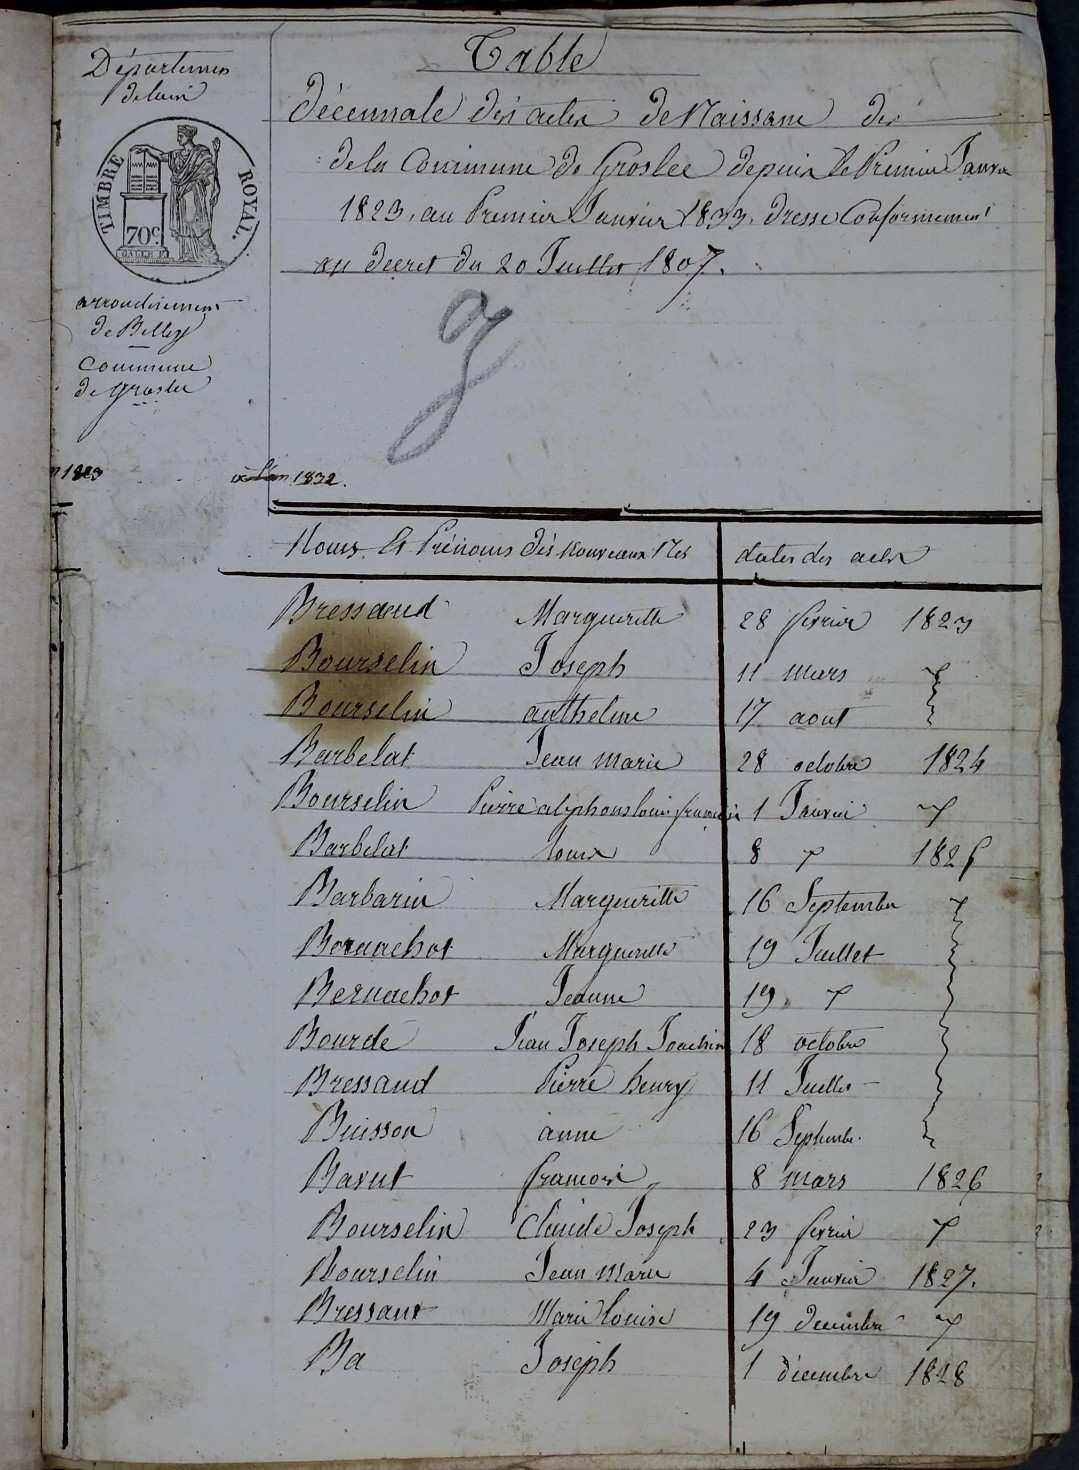 Département
de l'ain
TIMBRE ROYAL.
70c.
arrondissement
de Belley
Commune
de Groslee
1823 à l'an 1832.
Table
décennale des actes de Naissance des
de la Commune de Groslee depuis le Premier Janvier
1823, au Premier Janvier 1833, dressé Conformement
au decret du 20 Juillet 1807.
Noms et Prénoms des Nouveaux Nés dates des actes
Bressaud Marguerite 28 fevrier 1823
Bourselin Joseph 11 mars
Bourselin anthelme 17 aout
Barbelat Jean Marie 28 octobre 1824
Bourselin Pierre alphons louis françois 1 Janvier
Barbelat louis 8 1825
Barbarin Marguerite 16 Septembre
Bernachot Marguerite 19 Juillet
Bernachot Jeanne 19
Bourdé Jean Joseph Joachim 18 octobre
Bressaud Pierre henry 11 Juillet
Buisson anne 16 Septembre
Bavut françois 8 mars 1826
Bourselin Claude Joseph 23 fevrier
Bourselin Jean Marie 4 Janvier 1827.
Bressaut Marie Louise 19 decembre
Ba Joseph 1 décembre 1828